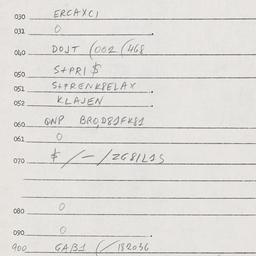 030 ERCAXCI
031 0
040 DOJT (002 (468
050 S+PRI $
051 S+PRENKPELAX
052 KLAJEN
060 QNP BRO,D81FK81
061 0
070 $ /-/2G81L1S
080 0
090 0
900 GAB1 (/182036